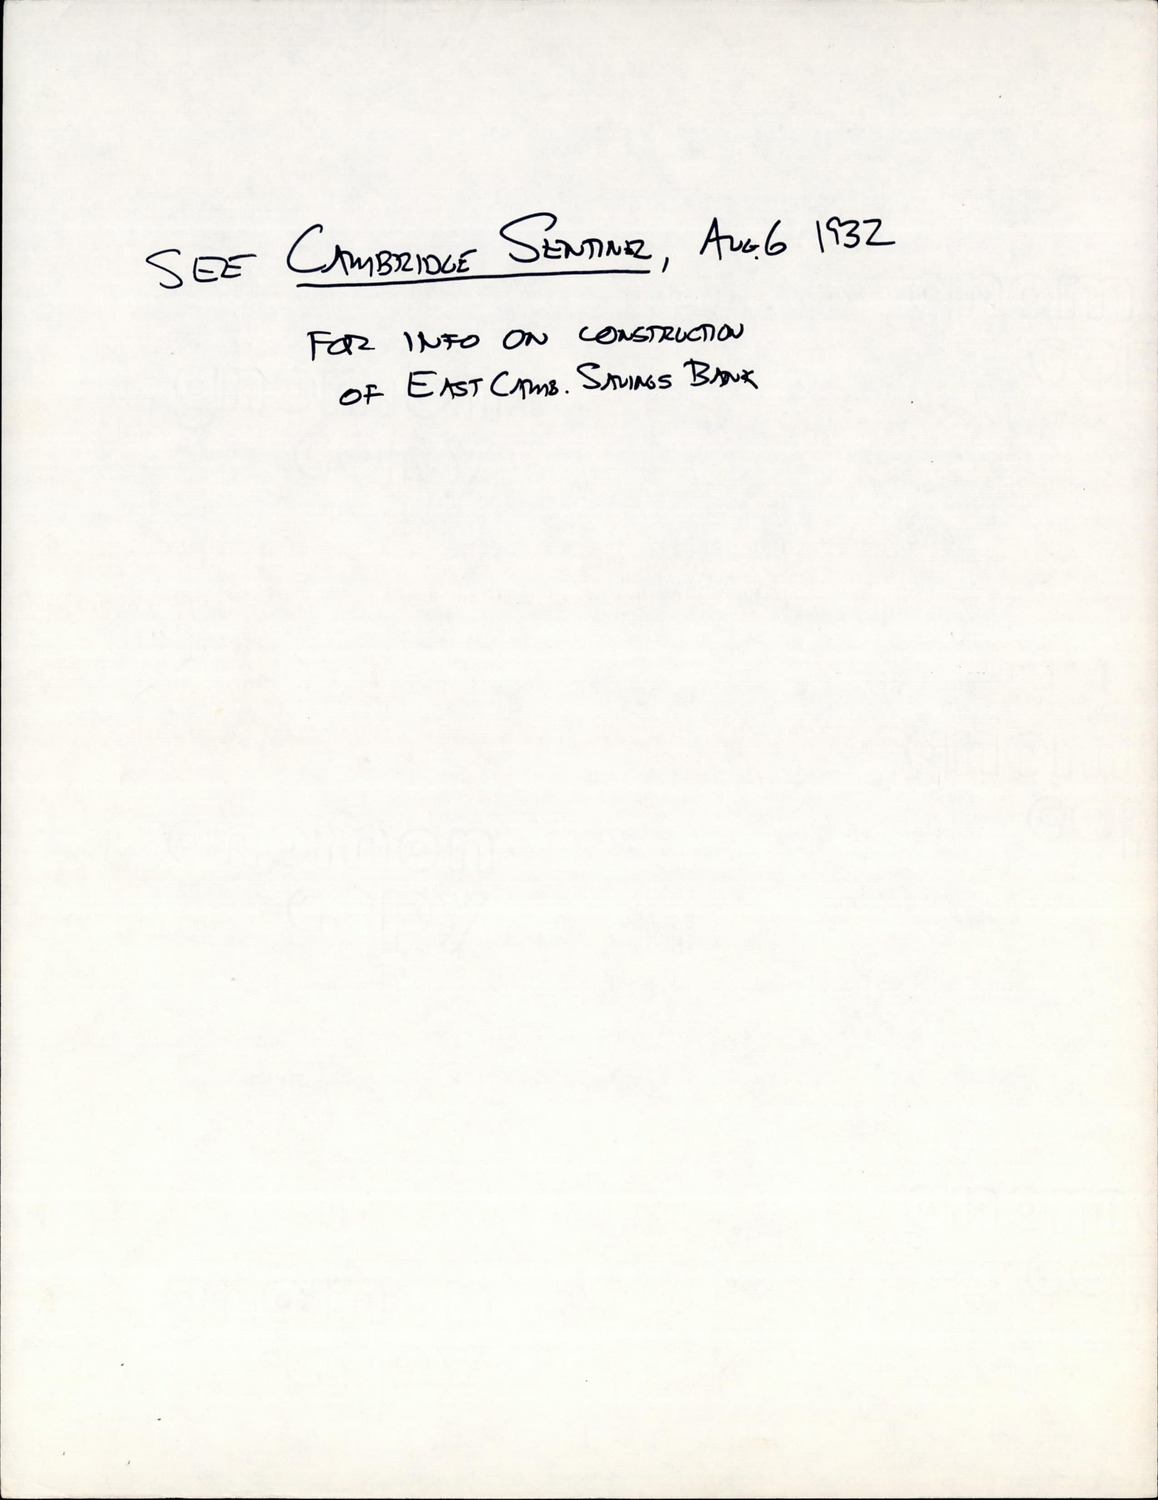 SEE CAMBRIDGE SENTINEL, AUG. 6 1932
FOR INFO ON CONSTRUCTION
OF EAST CAMB. SAVINGS BANK